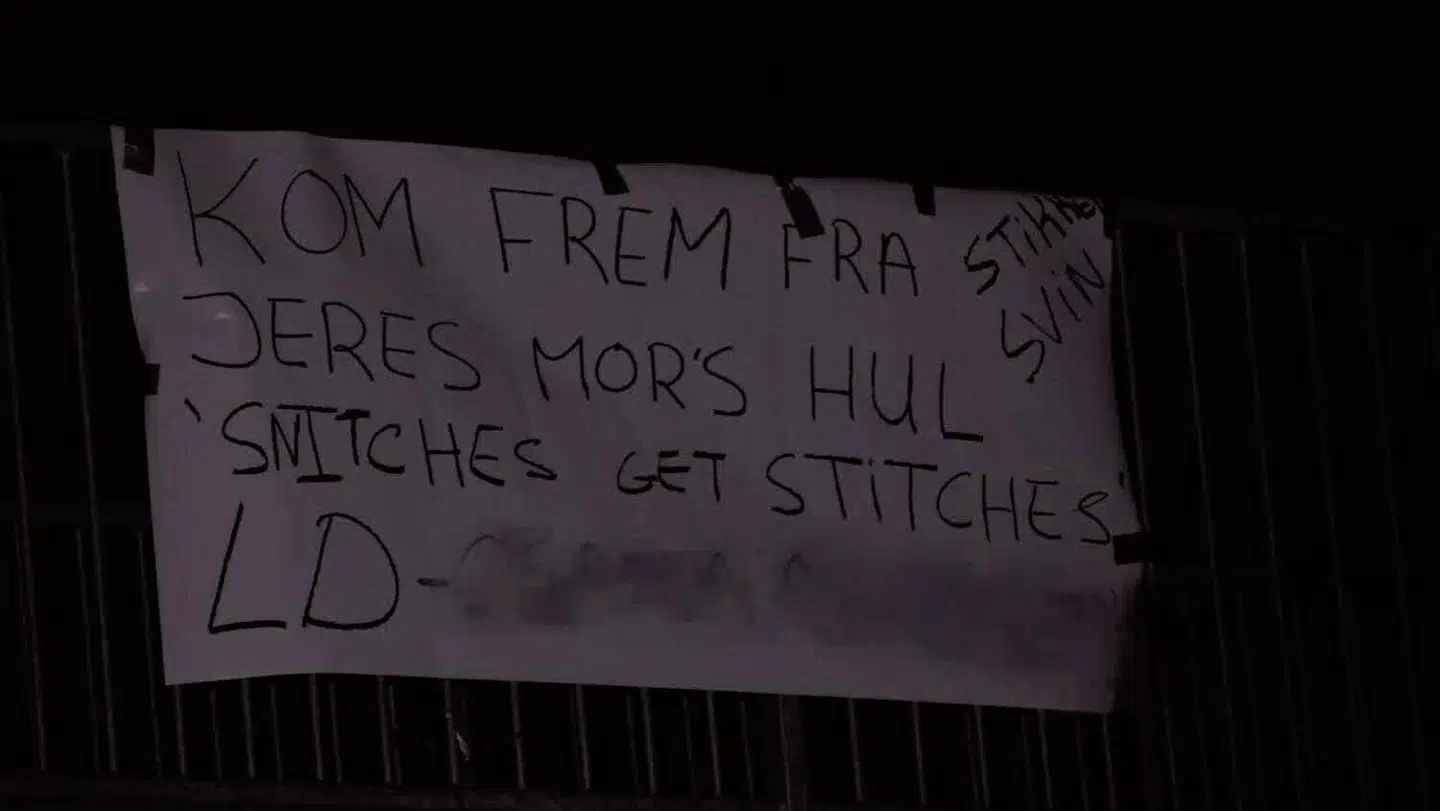 KOM FREM FRA
JERES MOR'S HUL
'SNITCHES GET STITCHES'
LD-
STIKKER
SVIN